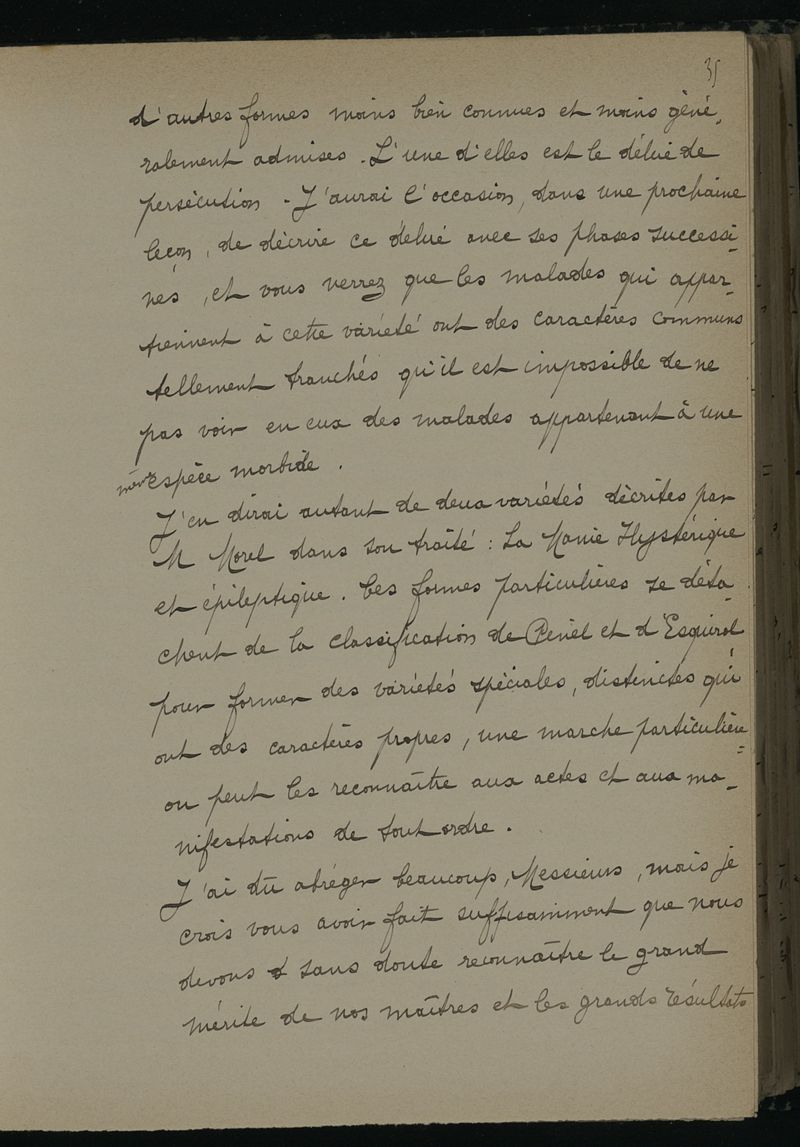 35
d'autres formes moins bien connues et moins géné-
ralement admises. L'une d'elles est le délire de
persécution. J'aurai l'occasion, dans une prochaine
leçon, de décrire ce délire avec ses phases successi-
ves, et vous verrez que les malades qui appar-
tiennent à cette variété ont des caractères communs
tellement tranchés qu'il est impossible de ne
pas voir en eux des malades appartenant à une
même espèce morbide.
J'en dirai autant de deux variétés décrites par
M Morel dans son traité : La Manie Hystérique
et épileptique. Ces formes particulières se déta-
chent de la classification de Pinel et d'Esquirol
pour former des variétés spéciales, distinctes qui
ont des caractères propres, une marche particulière
on peut les reconnaître aux actes et aux ma-
nifestations de tout ordre.
J'ai dû abréger beaucoup, Messieurs, mais je
crois vous avoir fait suffisamment que nous
devons sans doute reconnaître le grand
mérite de nos maîtres et les grands résultats